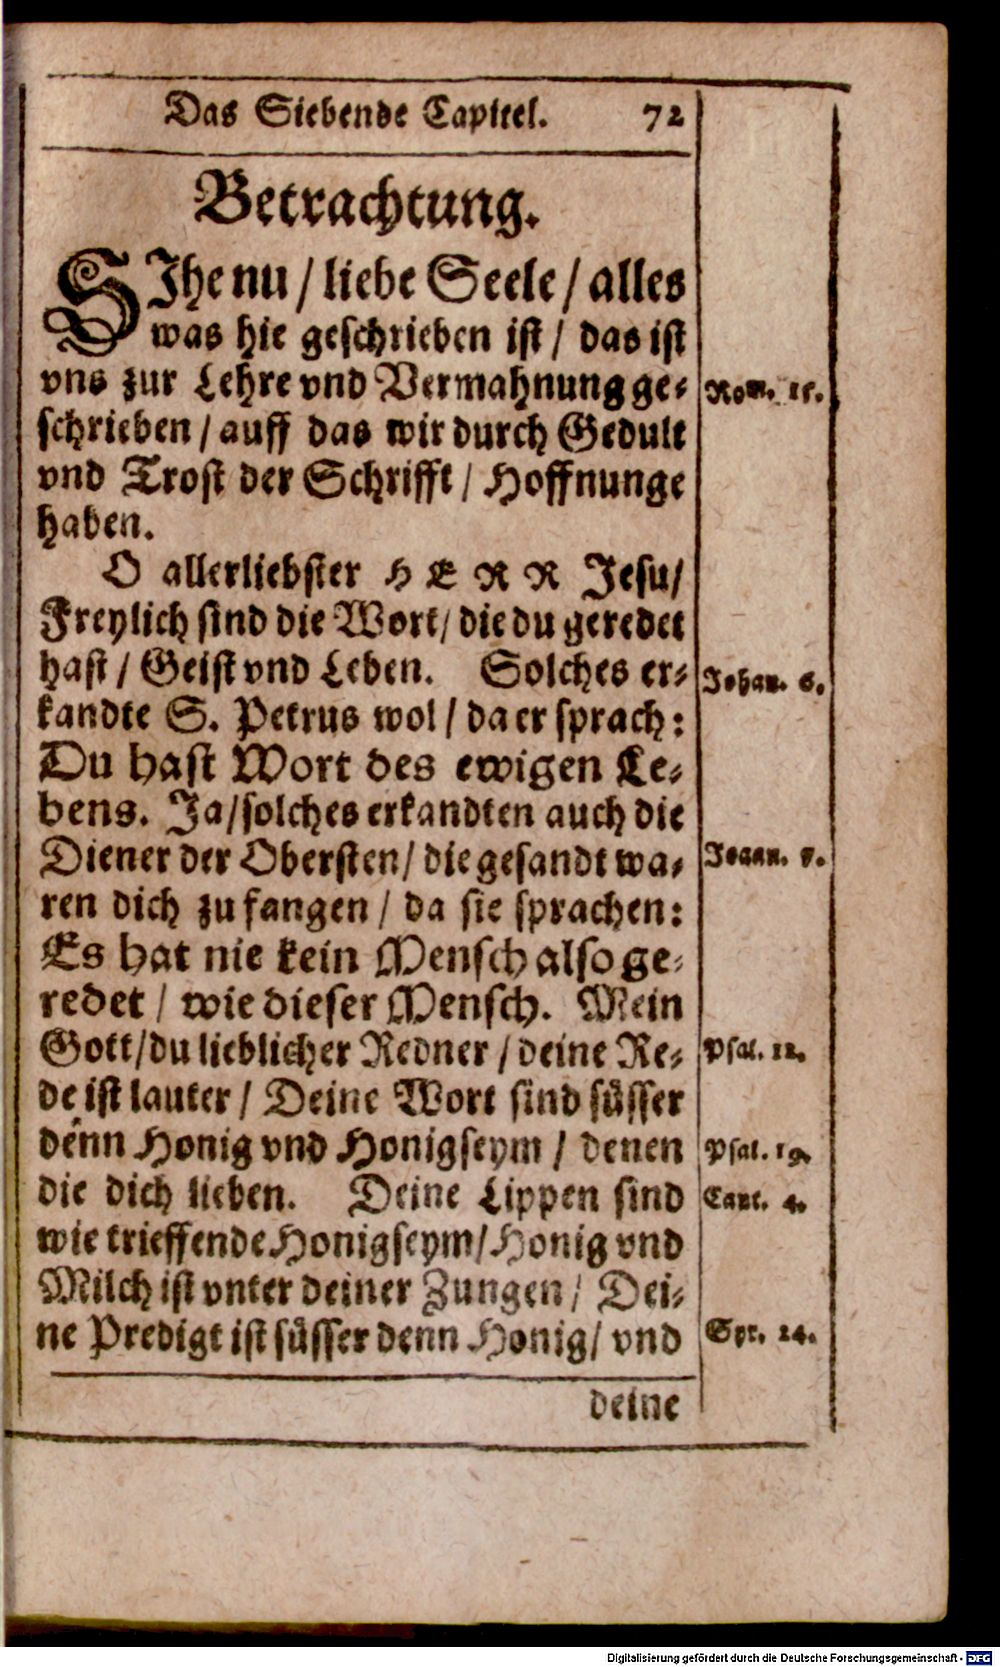 Das Siebende Capitel. 72
Betrachtung.
SIhe nu / liebe Seele / alles
was hie geschrieben ist / das ist
vns zur Lehre vnd Vermahnung ge-
Rom. 15.
schrieben / auff das wir durch Gedult
vnd Trost der Schrifft / Hoffnunge
haben.
O allerliebster HERR Jesu/
Freylich sind die Wort / die du geredet
hast / Geist vnd Leben. Solches er-
Johan. 6.
kandte S. Petrus wol / da er sprach:
Du hast Wort des ewigen Le-
bens. Ja/solches erkandten auch die
Diener der Obersten/ die gesandt wa-
Joann. 7.
ren dich zu fangen / da sie sprachen:
Es hat nie kein Mensch also ge-
redet / wie dieser Mensch. Mein
Gott/du lieblicher Redner / deine Re-
Psal. 12.
de ist lauter / Deine Wort sind süsser
denn Honig vnd Honigseym / denen
Psal. 19.
die dich lieben. Deine Lippen sind
Cant. 4.
wie trieffende Honigseym/Honig vnd
Milch ist vnter deiner Zungen / Dei-
ne Predigt ist süsser denn Honig/ vnd
Syr. 24.
deine
Digitalisierung gefördert durch die Deutsche Forschungsgemeinschaft - DFG